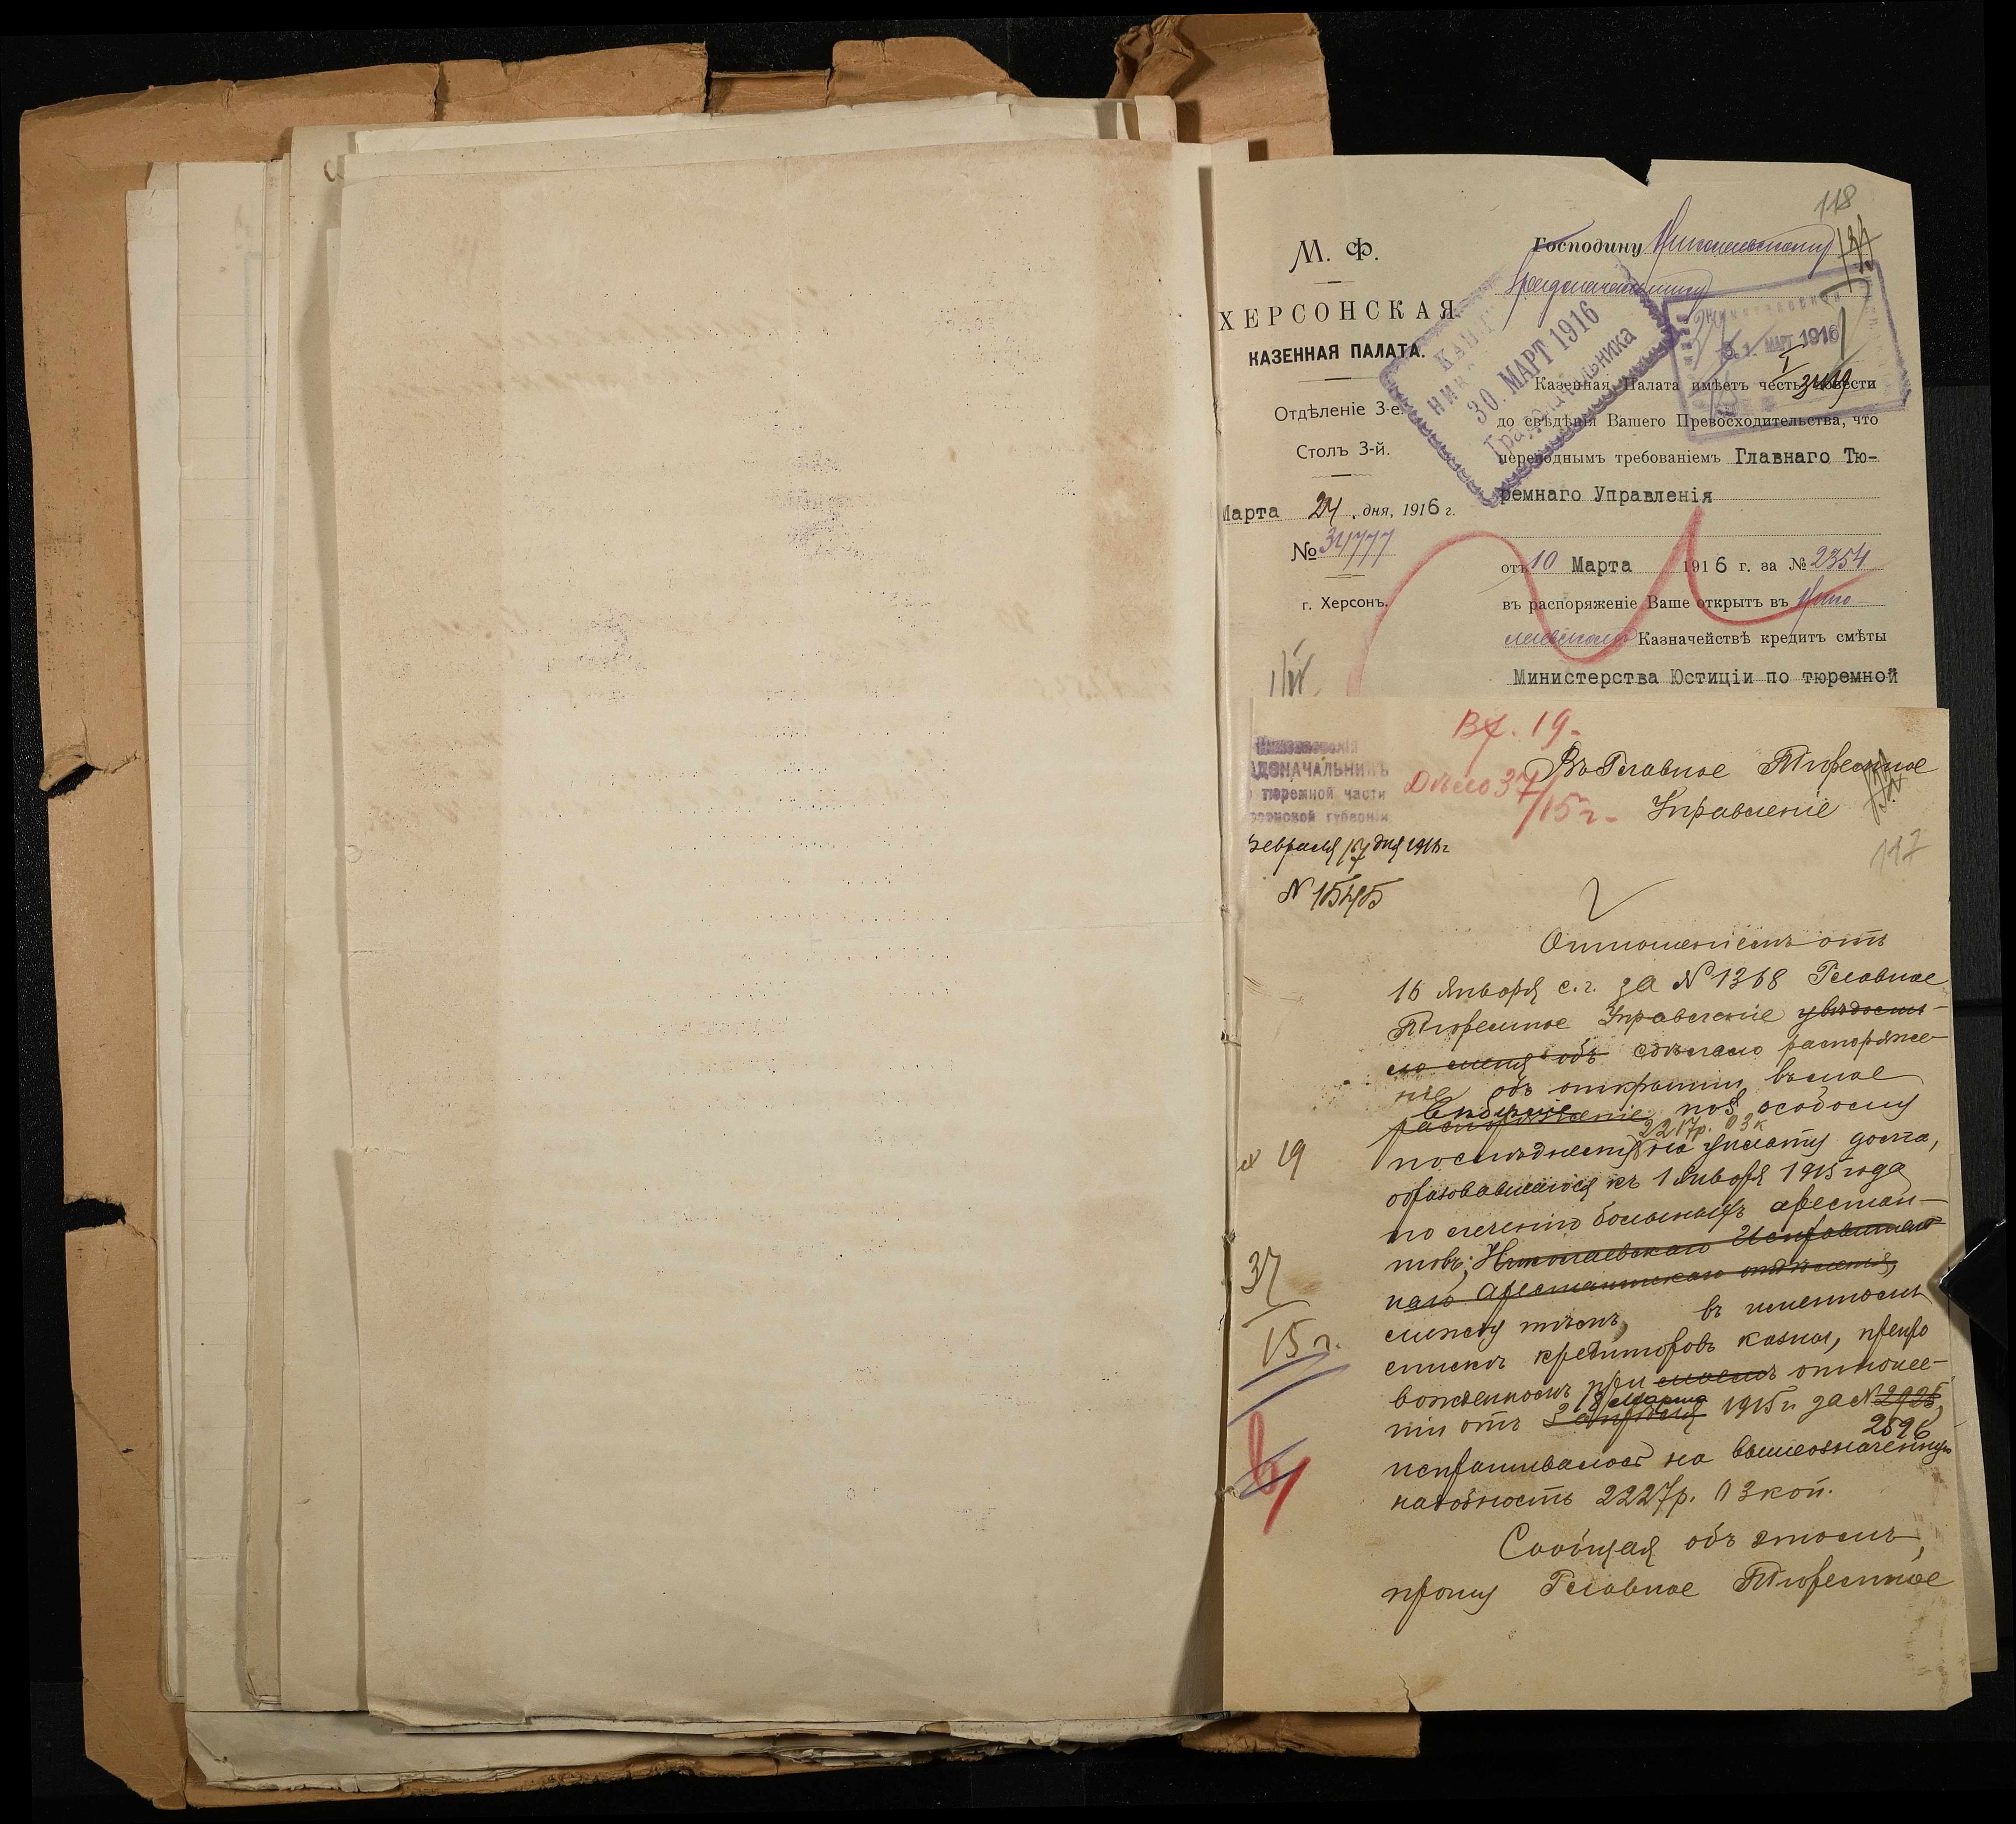 118
М. Ф.
ХЕРСОНСКАЯ
КАЗЕННАЯ ПАЛАТА.
Отдѣленіе 3-е.
Столъ 3-й.
Марта 24 дня, 1916 г.
№ 34777
г. Херсонъ.
Господину Николаевскому
Градоначальнику
30. МАРТ 1916
Градоначальника
МАРТ 1916
Казенная Палата имѣетъ честь довести
до свѣдѣнія Вашего Превосходительства, что
переводнымъ требованіемъ Главнаго Тю-
ремнаго Управленія
отъ 10 Марта 1916 г. за № 2354
въ распоряженіе Ваше открытъ въ Нико-
лаевскомъ Казначействѣ кредитъ смѣты
Министерства Юстиціи по тюремной
Вх. 19.
Дѣло 37/15 г.
Николаевскій
АДОНАЧАЛЬНИКЪ
тюремной части
рсонской губерніи
Февраля 17 дня 1916 г.
N 15495
Въ Главное Тюремное
Управленіе
117
Отношеніемъ отъ
16 Января с.г. за N 1368 Главное
Тюремное Управленіе увѣдоми-
ло меня объ сдѣлало распоряже-
ніе объ открытіи въ мое
распоряженіе по § особому
2217р. 03к
послѣднему на уплату долга,
образовавшагося къ 1 Января 1915 года
по леченію больныхъ арестан-
товъ, Николаевскаго Исправитель-
наго Арестантскаго отдѣленія,
между тѣмъ, въ именномъ
спискѣ кредиторовъ казны, препро
вожденномъ при моемъ отноше-
18 Марта
ніи отъ 3 апрѣля 1915 г. за N 2925,
2596
испрашивалось на вышеозначенную
надобность 2227р. 03 коп.
Сообщая объ этомъ,
прошу Главное Тюремное
19
37
15 г.